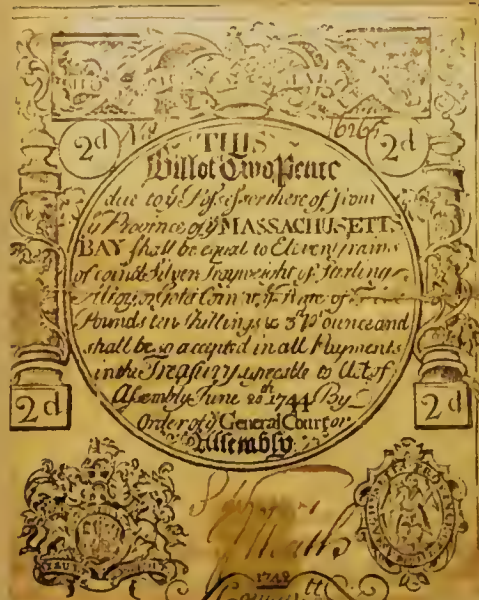 2d 2d
THIS
Bill of Two Pence
due to yͤ Possessor thereof from
yͤ Province of yͤ MASSACHUSETTS
BAY shall be equal to Eleven grains
of coin'd Silver Troyweight of Sterling
Alloy or Gold Coin at yͤ Rate of
Pounds ten Shillings & 3ᵈ P ounce and
shall be so accepted in all Payments
in the Treasury agreable to Act of
Assembly June 20th 1744 By
Order of yͤ General Court or
Assembly.
2d 2d
1742
Committee